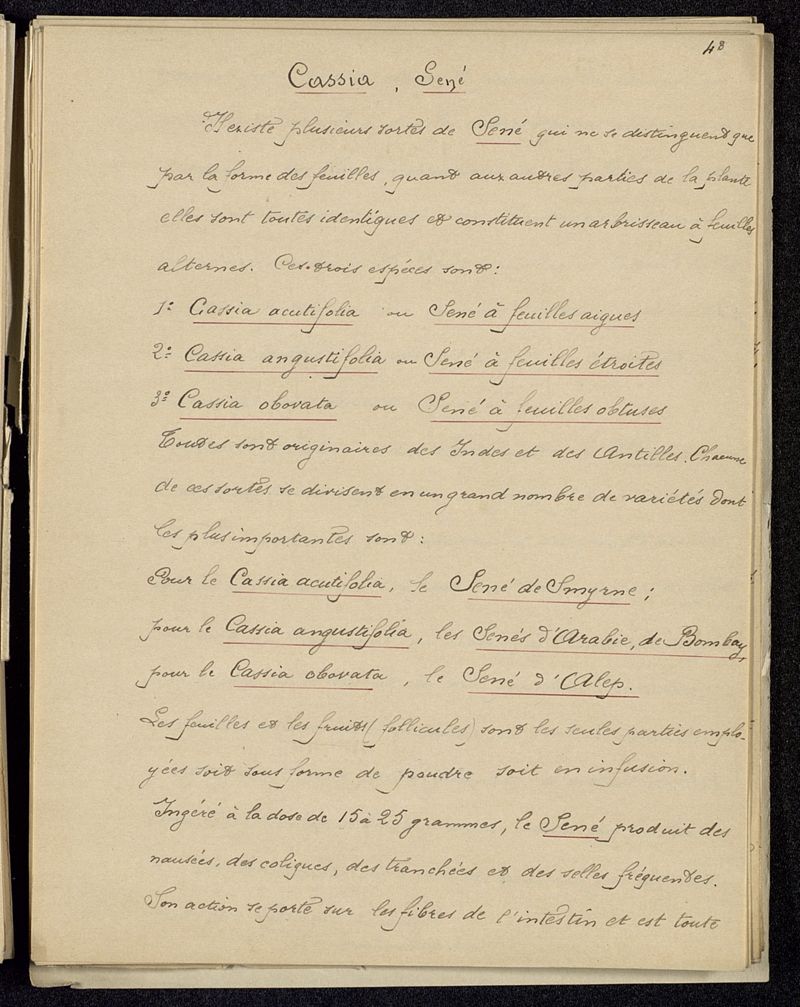 48
Cassia, Sené
Il existe plusieurs sortes de Sené qui ne se distinguent que
par la forme des feuilles, quant aux autres parties de la plante
elles sont toutes identiques et constituent un arbrisseau à feuilles
alternes. Ces trois espéces sont:
1º Cassia acutifolia ou Sené à feuilles aigues
2º Cassia angustifolia ou Sené à feuilles étroites
3º Cassia obovata ou Sené à feuilles obtuses
Toutes sont originaires des Indes et des Antilles. Chacune
de ces sortes se divisent en un grand nombre de variétés dont
les plus importantes sont:
Pour le Cassia acutifolia, le Sené de Smyrne;
pour le Cassia angustifolia, les Senés d'Arabie, de Bombay,
pour le Cassia obovata, le Sené d'Alep.
Les feuilles et les fruits (follicules) sont les seules parties emplo-
yées soit sous forme de poudre soit en infusion.
Ingéré à la dose de 15 à 25 grammes, le Sené produit des
nausées, des coliques, des tranchées et des selles fréquentes.
Son action se porte sur les fibres de l'intestin et est toute